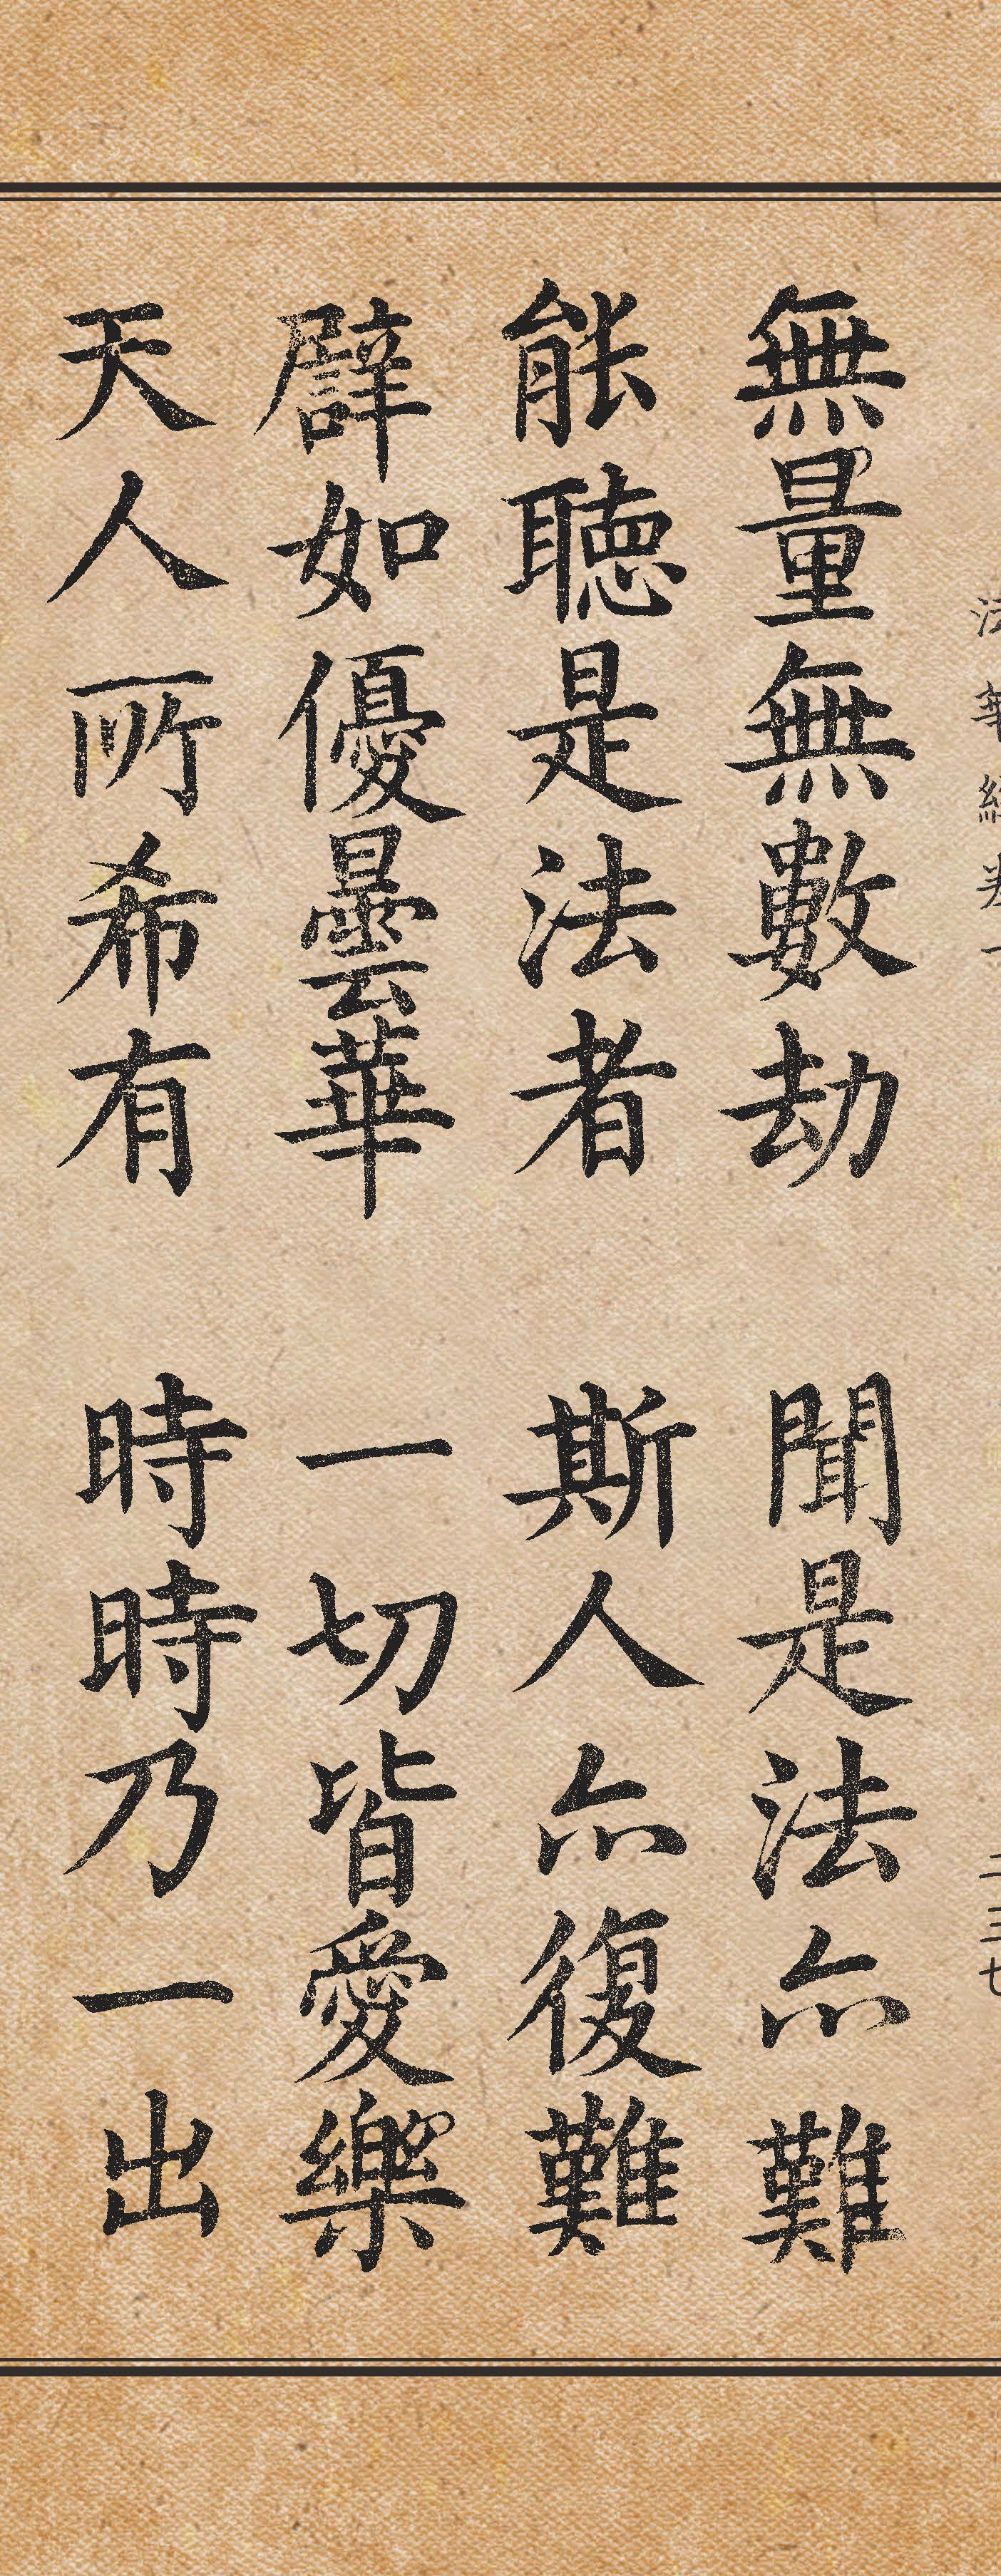 無量無數劫　聞是法亦難
能聽是法者　斯人亦復難
譬如優曇華　一切皆愛樂
天人所希有　時時乃一出
法華經卷一
二三七